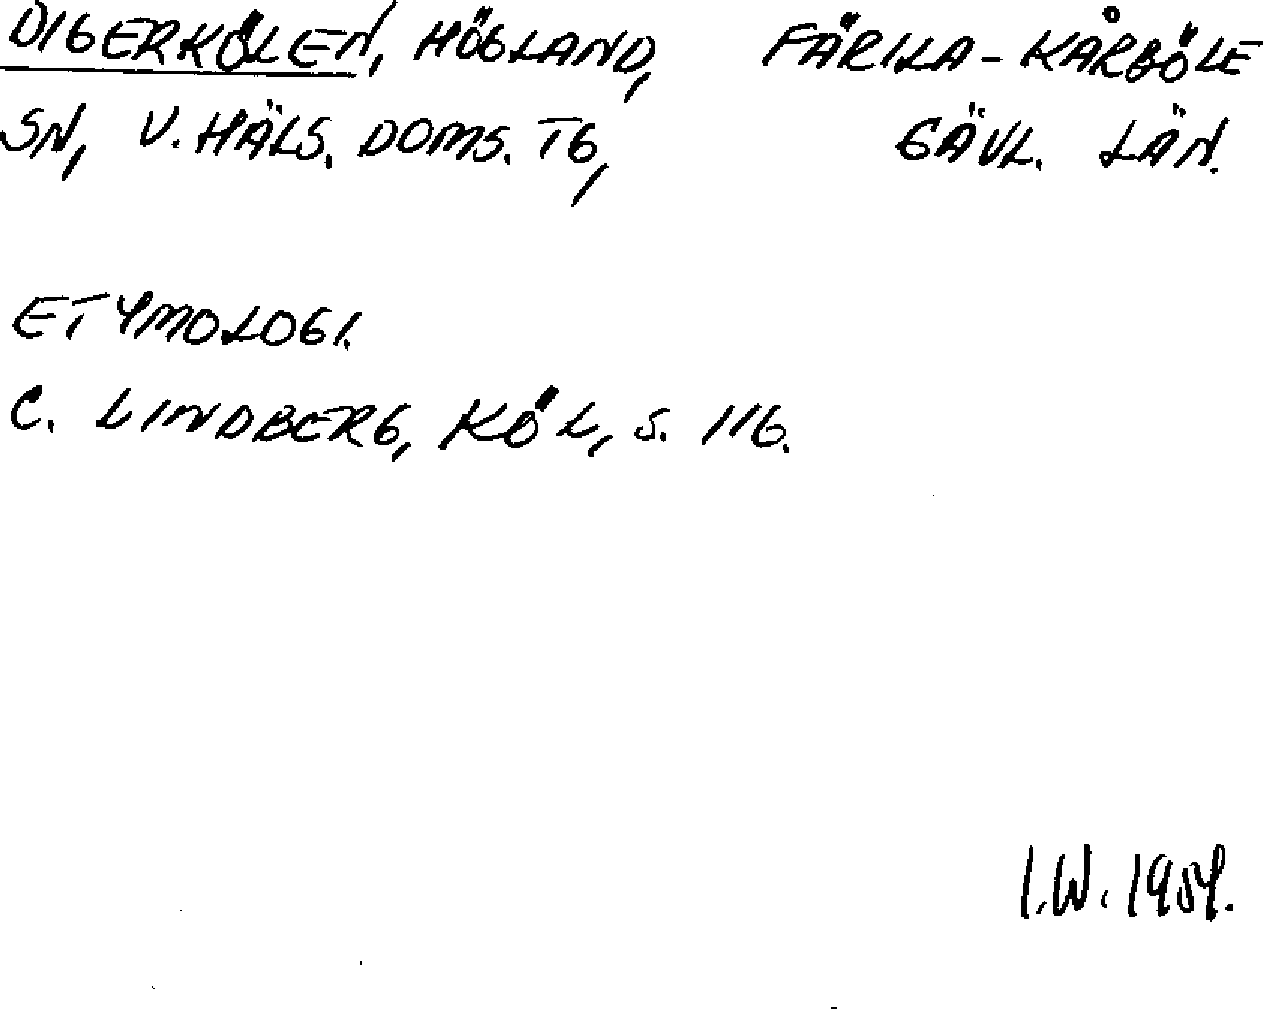 DIGERKÖLEN, HÖGLAND, FÄRILA-KÅRBÖLE
SN, V. HÄLS. DOMS. TG, GÄVL. LÄN.
ETYMOLOGI.
C. LINDBERG, KÖL, S. 116.
I.W. 1954.